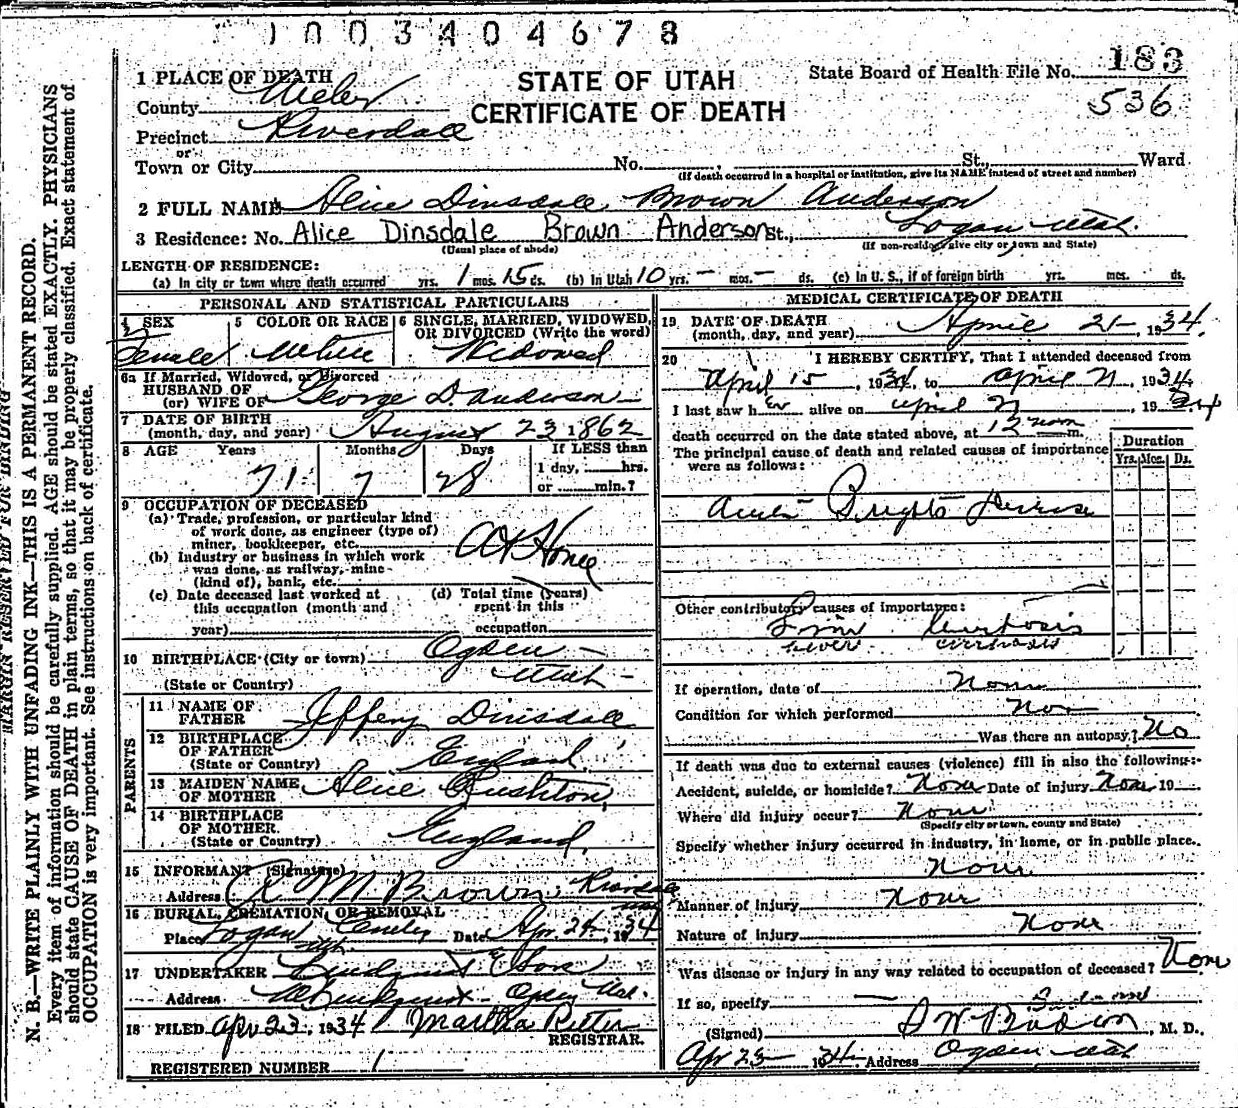 1003404678
183
STATE OF UTAH
CERTIFICATE OF DEATH
State Board of Health File No.
536
1 PLACE OF DEATH
County Weber
Precinct Riverdale
or
Town or City No. St., Ward
(If death occurred in a hospital or institution, give its NAME instead of street and number)
2 FULL NAME Alice Dinsdale Brown Anderson
3 Residence: No. Alice Dinsdale Brown Anderson St., Logan Utah.
(Usual place of abode) (If non-resident give city or town and State)
LENGTH OF RESIDENCE:
(a) In city or town where death occurred yrs. 1 mos. 15 ds. (b) In Utah 10 yrs. - mos. - ds. (c) In U. S., if of foreign birth yrs. mos. ds.
PERSONAL AND STATISTICAL PARTICULARS
4 SEX Female
5 COLOR OR RACE White
6 SINGLE, MARRIED, WIDOWED, OR DIVORCED (Write the word) Widowed
6a If Married, Widowed, or Divorced
HUSBAND OF
(or) WIFE OF George D. Anderson
7 DATE OF BIRTH
(month, day, and year) August 23 1862
8 AGE Years Months Days If LESS than
71 7 28 1 day, hrs.
or min.?
9 OCCUPATION OF DECEASED
(a) Trade, profession, or particular kind
of work done, as engineer (type of)
miner, bookkeeper, etc. At Home
(b) Industry or business in which work
was done, as railway, mine
(kind of), bank, etc.
(c) Date deceased last worked at
this occupation (month and
year)
(d) Total time (years)
spent in this
occupation
10 BIRTHPLACE (City or town) Ogden
(State or Country) Utah
PARENTS
11 NAME OF
FATHER Jeffery Dinsdale
12 BIRTHPLACE
OF FATHER England
(State or Country)
13 MAIDEN NAME
OF MOTHER Alice Rushton
14 BIRTHPLACE
OF MOTHER England.
(State or Country)
15 INFORMANT (Signature)
Address R M Brown, Riverdale
16 BURIAL, CREMATION, OR REMOVAL
Place Logan Date Apr. 24 1934
17 UNDERTAKER Lindquist & Sons
Address Ogden Utah.
18 FILED Apr 23, 1934 Martha Ritter
REGISTRAR.
REGISTERED NUMBER 1
MEDICAL CERTIFICATE OF DEATH
19 DATE OF DEATH
(month, day, and year) April 21 1934
20 I HEREBY CERTIFY, That I attended deceased from
April 15, 1934, to April 21, 1934.
I last saw her alive on April 21, 1934
death occurred on the date stated above, at 12 noon m.
The principal cause of death and related causes of importance
were as follows:
Duration
Yrs. Mos. Ds.
Acute Brights Disease
Other contributory causes of importance:
Liver Cirrhosis
liver cirrhosis
If operation, date of None
Condition for which performed
Was there an autopsy? No
If death was due to external causes (violence) fill in also the following:
Accident, suicide, or homicide? None Date of injury None 19
Where did injury occur? None
(Specify city or town, county and State)
Specify whether injury occurred in industry, in home, or in public place.
None
Manner of Injury None
Nature of injury None
Was disease or injury in any way related to occupation of deceased? None
If so, specify
(Signed) M. D.,
Apr 23 1934 Address Ogden Utah
MARGIN RESERVED FOR BINDING
N. B.—WRITE PLAINLY WITH UNFADING INK—THIS IS A PERMANENT RECORD.
Every item of information should be carefully supplied. AGE should be stated EXACTLY. PHYSICIANS
should state CAUSE OF DEATH in plain terms, so that it may be properly classified. Exact statement of
OCCUPATION is very important. See instructions on back of certificate.